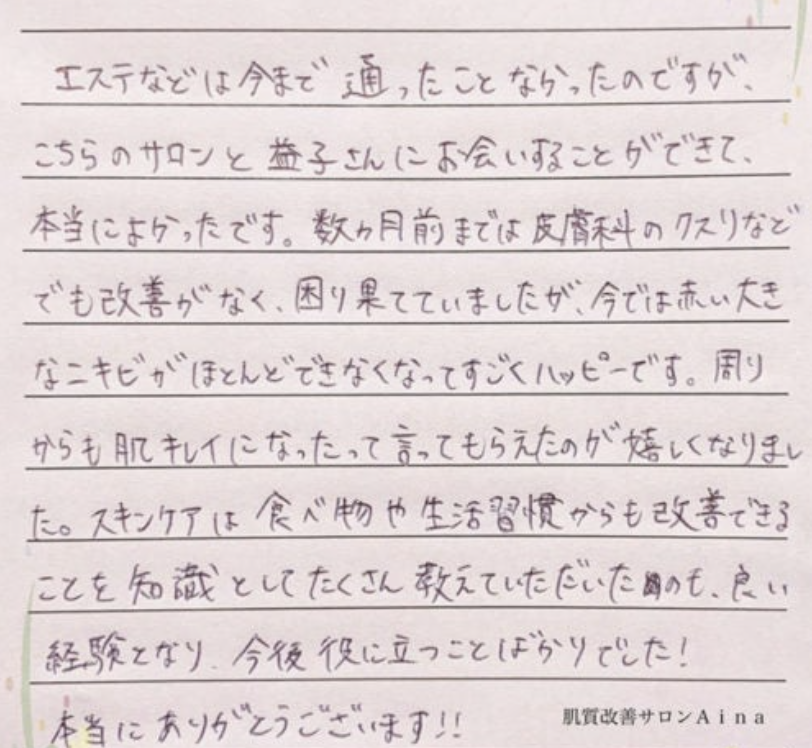 エステなどは今まで通ったことなかったのですが、
こちらのサロンと益子さんにお会いすることができて、
本当によかったです。数ヶ月前までは皮膚科のクスリなど
でも改善がなく、困り果てていましたが、今では赤い大き
なニキビがほとんどできなくなってすごくハッピーです。周り
からも肌キレイになったって言ってもらえたのが嬉しくなりまし
た。スキンケアは食べ物や生活習慣からも改善できる
ことを知識としてたくさん教えていただいたのも、良い
経験となり、今後役に立つことばかりでした!
本当にありがとうございます!!
肌質改善サロンAina